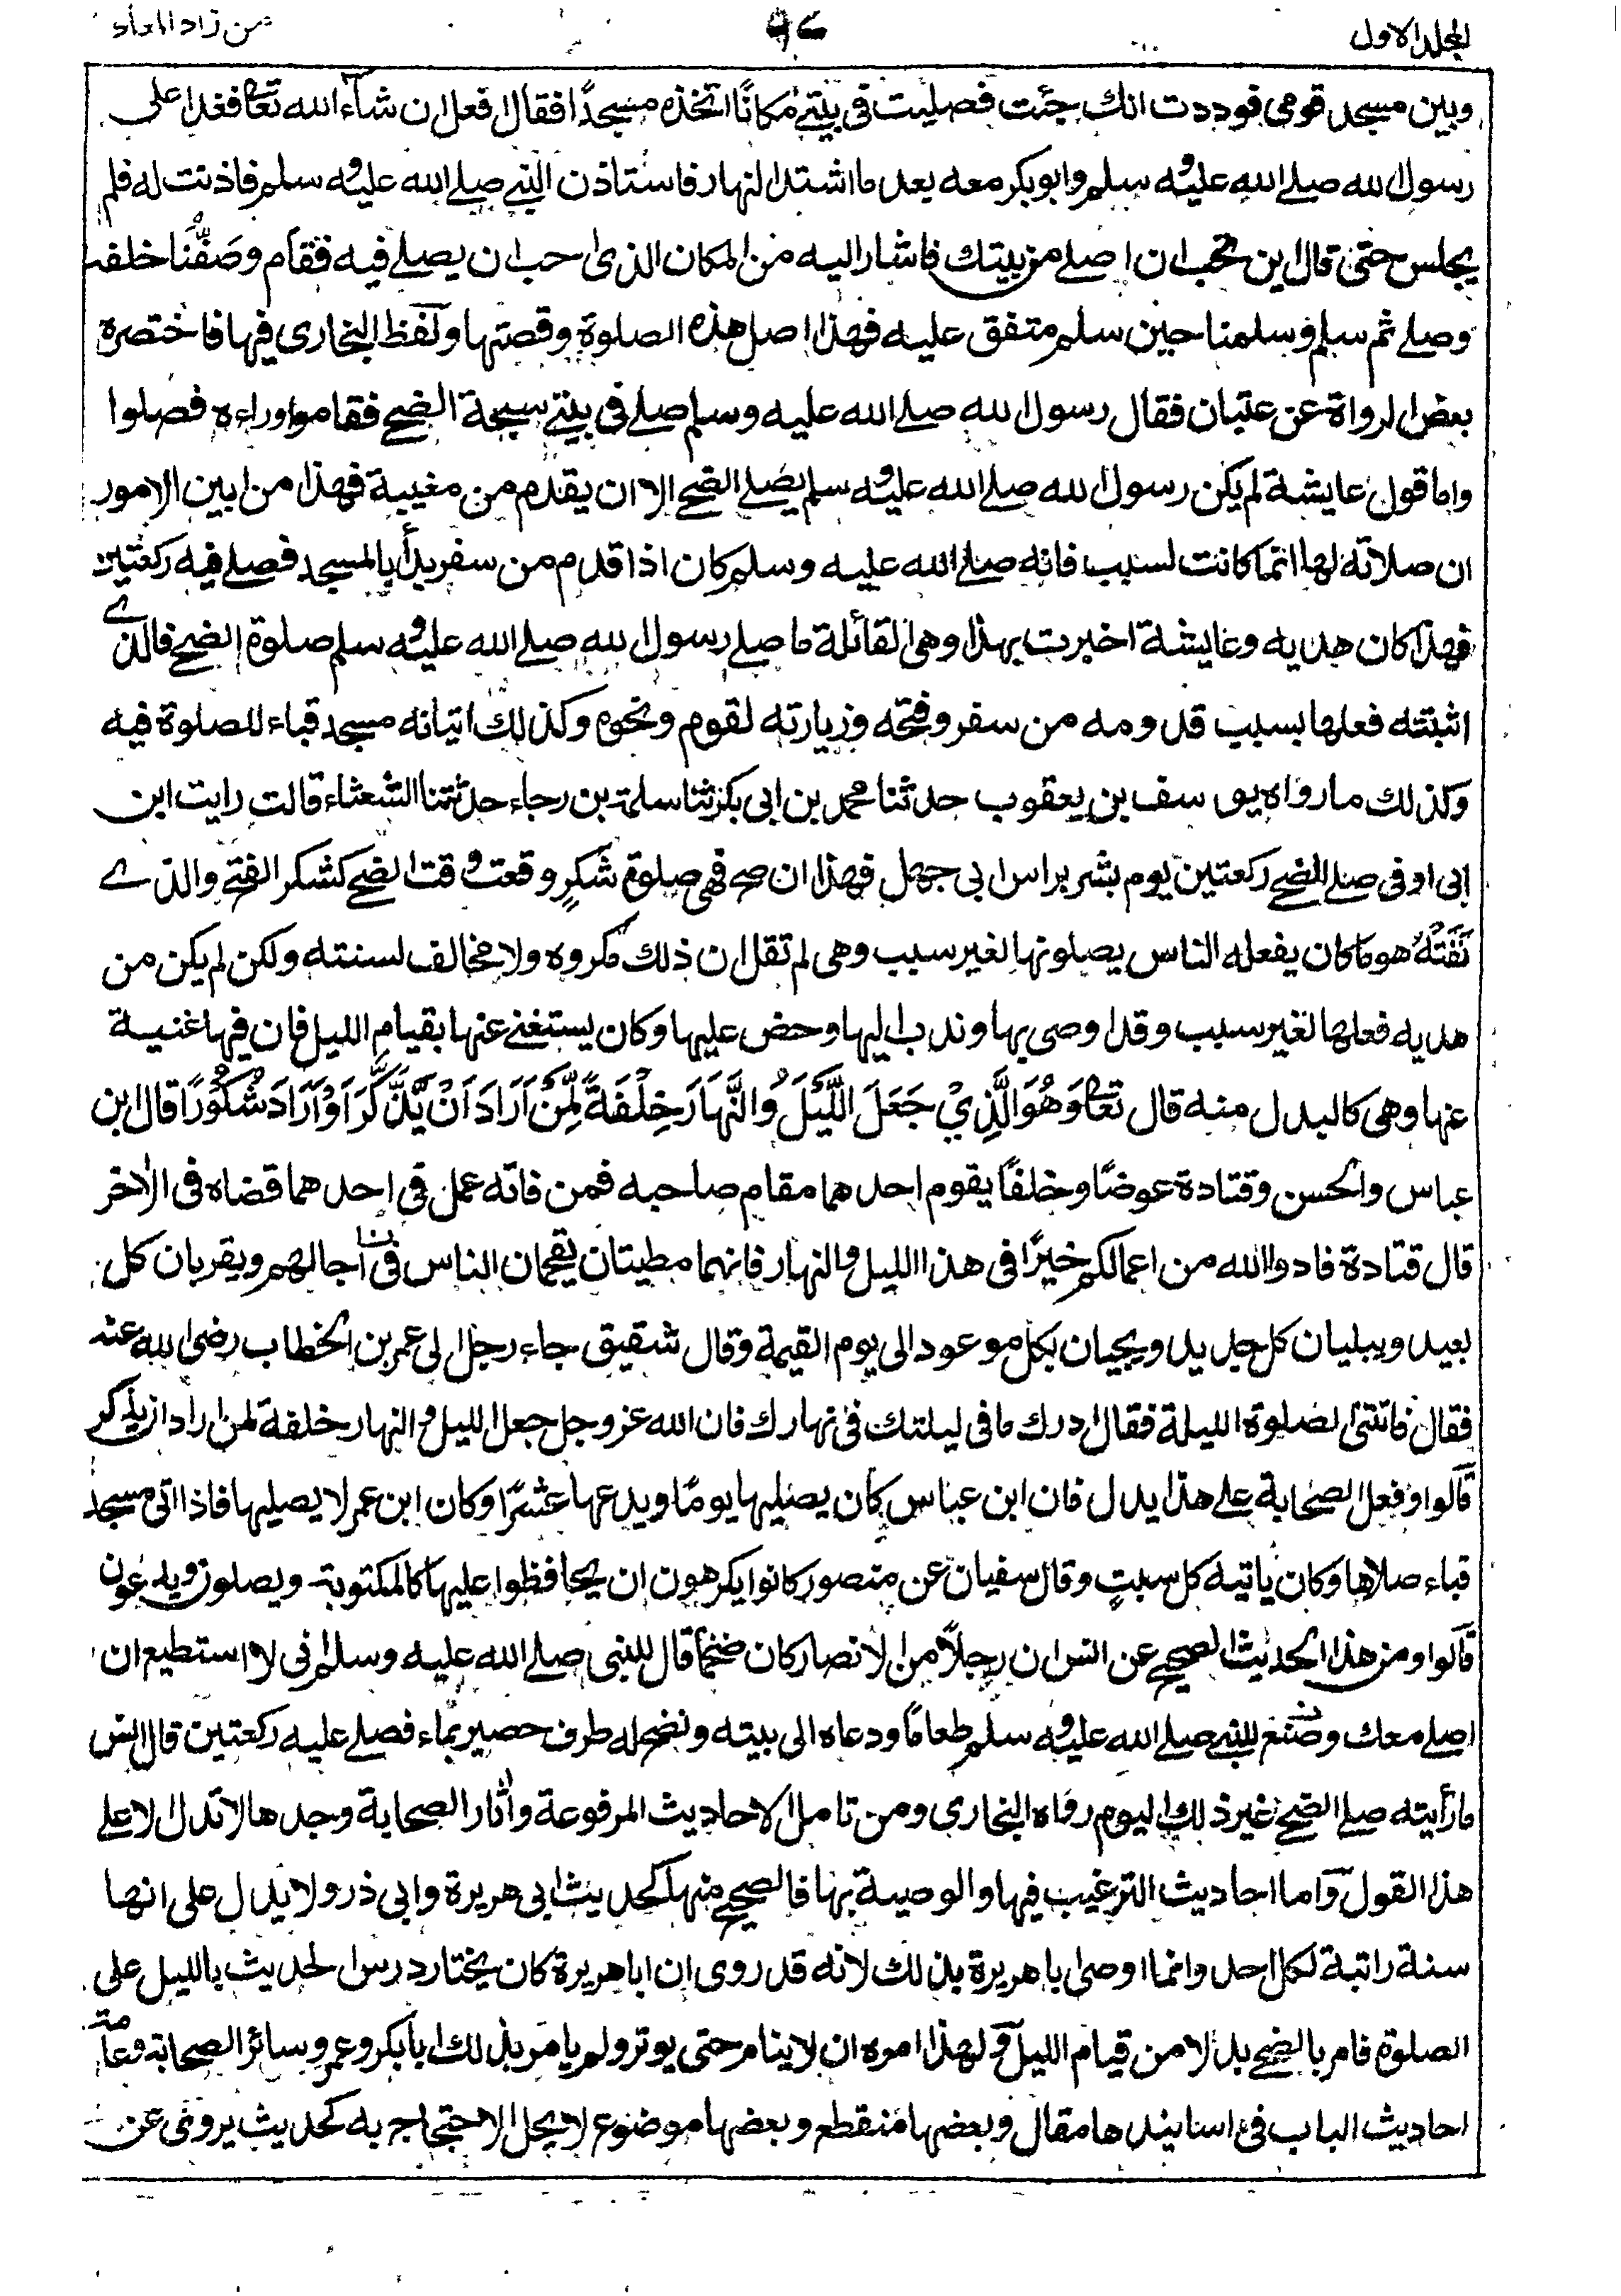 المجلد الاول ٩٧ من زاد المعاد
وبين مسجد قومى فوددت انك جئت فصليت فى بيتى مكانًا اتخذه مسجدًا فقال افعل ان شاء الله تعالى فغدا على
رسول الله صلے الله عليه وسلم وابوبكر معه بعد ما اشتد النهار فاستاذن النبے صلے الله عليه وسلم فاذنت له فلم
يجلس حتى قال اين تحب ان اصلے من بيتك فاشار اليه من المكان الذى احب ان يصلے فيه فقام وصَفَّنا خلفه
وصلے ثم سلم وسلمنا حين سلم متفق عليه فهذا اصل هذه الصلوة وقصتها ولفظ البخارى فيها فاختصره
بعض الرواة عن عتبان فقال رسول الله صلے الله عليه وسلم صلے فى بيتے سبحة الضحے فقاموا وراءه فصلوا
واما قول عايشة لم يكن رسول الله صلے الله عليه وسلم يصلے الضحے الا ان يقدم من مغيبة فهذا من ابين الامور
ان صلاته لها انما كانت لسبب فانه صلے الله عليه وسلم كان اذا قدم من سفر بدأ بالمسجد فصلے فيه ركعتين
فهذا كان هديه وعايشة اخبرت بهذا وهى القائلة ما صلے رسول الله صلے الله عليه وسلم صلوة الضحے فالذے
اثبتته فعلها بسبب قدومه من سفر وفتحه وزيارته لقوم ونحوه وكذلك اتيانه مسجد قباء للصلوة فيه
وكذلك ما رواه يوسف بن يعقوب حدثنا محمد بن ابى بكر ثنا سلمة بن رجاء حدثتنا الشعثاء قالت رايت ابن
ابى اوفى صلے الضحے ركعتين يوم بشر براس ابى جهل فهذا ان صح فهى صلوة شكرٍ وقعت وقت الضحے كشكر الفتح والذے
نَفَتْهُ هو ما كان يفعله الناس يصلونها لغير سبب وهى لم تقل ان ذلك مكروه ولا مخالف لسنته ولكن لم يكن من
هديه فعلها لغير سبب وقد اوصى بها وندب اليها وحض عليها وكان يستغنے عنها بقيام الليل فان فيها غنية
عنها وهى كالبدل منه قال تعالى وَهُوَ الَّذِيْ جَعَلَ اللَّيْلَ وَالنَّهَارَ خِلْفَةً لِّمَنْ اَرَادَ اَنْ يَّذَّكَّرَ اَوْ اَرَادَ شُكُوْرًا قال ابن
عباس والحسن وقتادة عوضًا وخلفًا يقوم احدهما مقام صاحبه فمن فاته عمل فى احدهما قضاه فى الاخر
قال قتادة فادوا لله من اعمالكم خيرًا فى هذا الليل والنهار فانهما مطيتان يقحمان الناس فى اجالهم ويقربان كل
بعيد ويبليان كل جديد ويجيان بكل موعود الى يوم القيمة وقال شقيق جاء رجل الى عمر بن الخطاب رضى الله عنه
فقال فاتتنى الصلوة الليلة فقال ادرك ما فى ليلتك فى نهارك فان الله عز وجل جعل الليل والنهار خلفة لمن اراد ان يذكر
قالوا وفعل الصحابة على هذا يدل فان ابن عباس كان يصليها يومًا ويدعها عشرًا وكان ابن عمر لا يصليها فاذا اتى مسجد
قباء صلاها وكان ياتيه كل سبتٍ وقال سفيان عن منصور كانوا يكرهون ان يحافظوا عليها كالمكتوبة ويصلون ويدعون
قالوا ومن هذا الحديث الصحيح عن انس ان رجلًا من الانصار كان ضخمًا قال للنبى صلے الله عليه وسلم انى لا استطيع ان
اصلے معك وصنع للنبے صلے الله عليه وسلم طعامًا ودعاه الى بيته ونضح له طرف حصير بماء فصلے عليه ركعتين قال انس
ما رأيته صلے الضحے غير ذلك اليوم رواه البخارى ومن تامل الاحاديث المرفوعة واثار الصحابة وجدها لا تدل الا على
هذا القول واما احاديث الترغيب فيها والوصية بها فالصحيح منها كحديث ابى هريرة وابى ذر ولا يدل على انها
سنة راتبة لكل احد وانما اوصى ابا هريرة بذلك لانه قد روى ان ابا هريرة كان يختار درس الحديث بالليل على
الصلوة فامر بالضحے بدلا من قيام الليل ولهذا امره ان لا ينام حتى يوتر ولم يامر بذلك ابا بكر وعمر وسائر الصحابة وعامة
احاديث الباب فى اسانيدها مقال وبعضها منقطع وبعضها موضوع لا يحل الاحتجاج به كحديث يروى عن